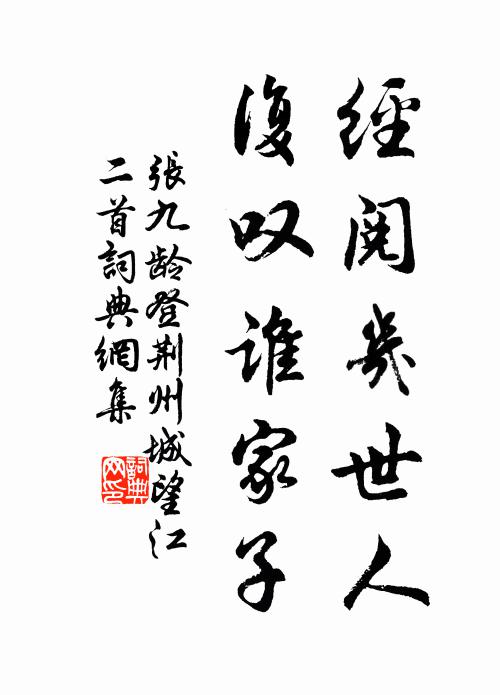 經閱幾世人
復叹谁家子
張九龄登荆州城望江
二首詞典網集
詞典
网印